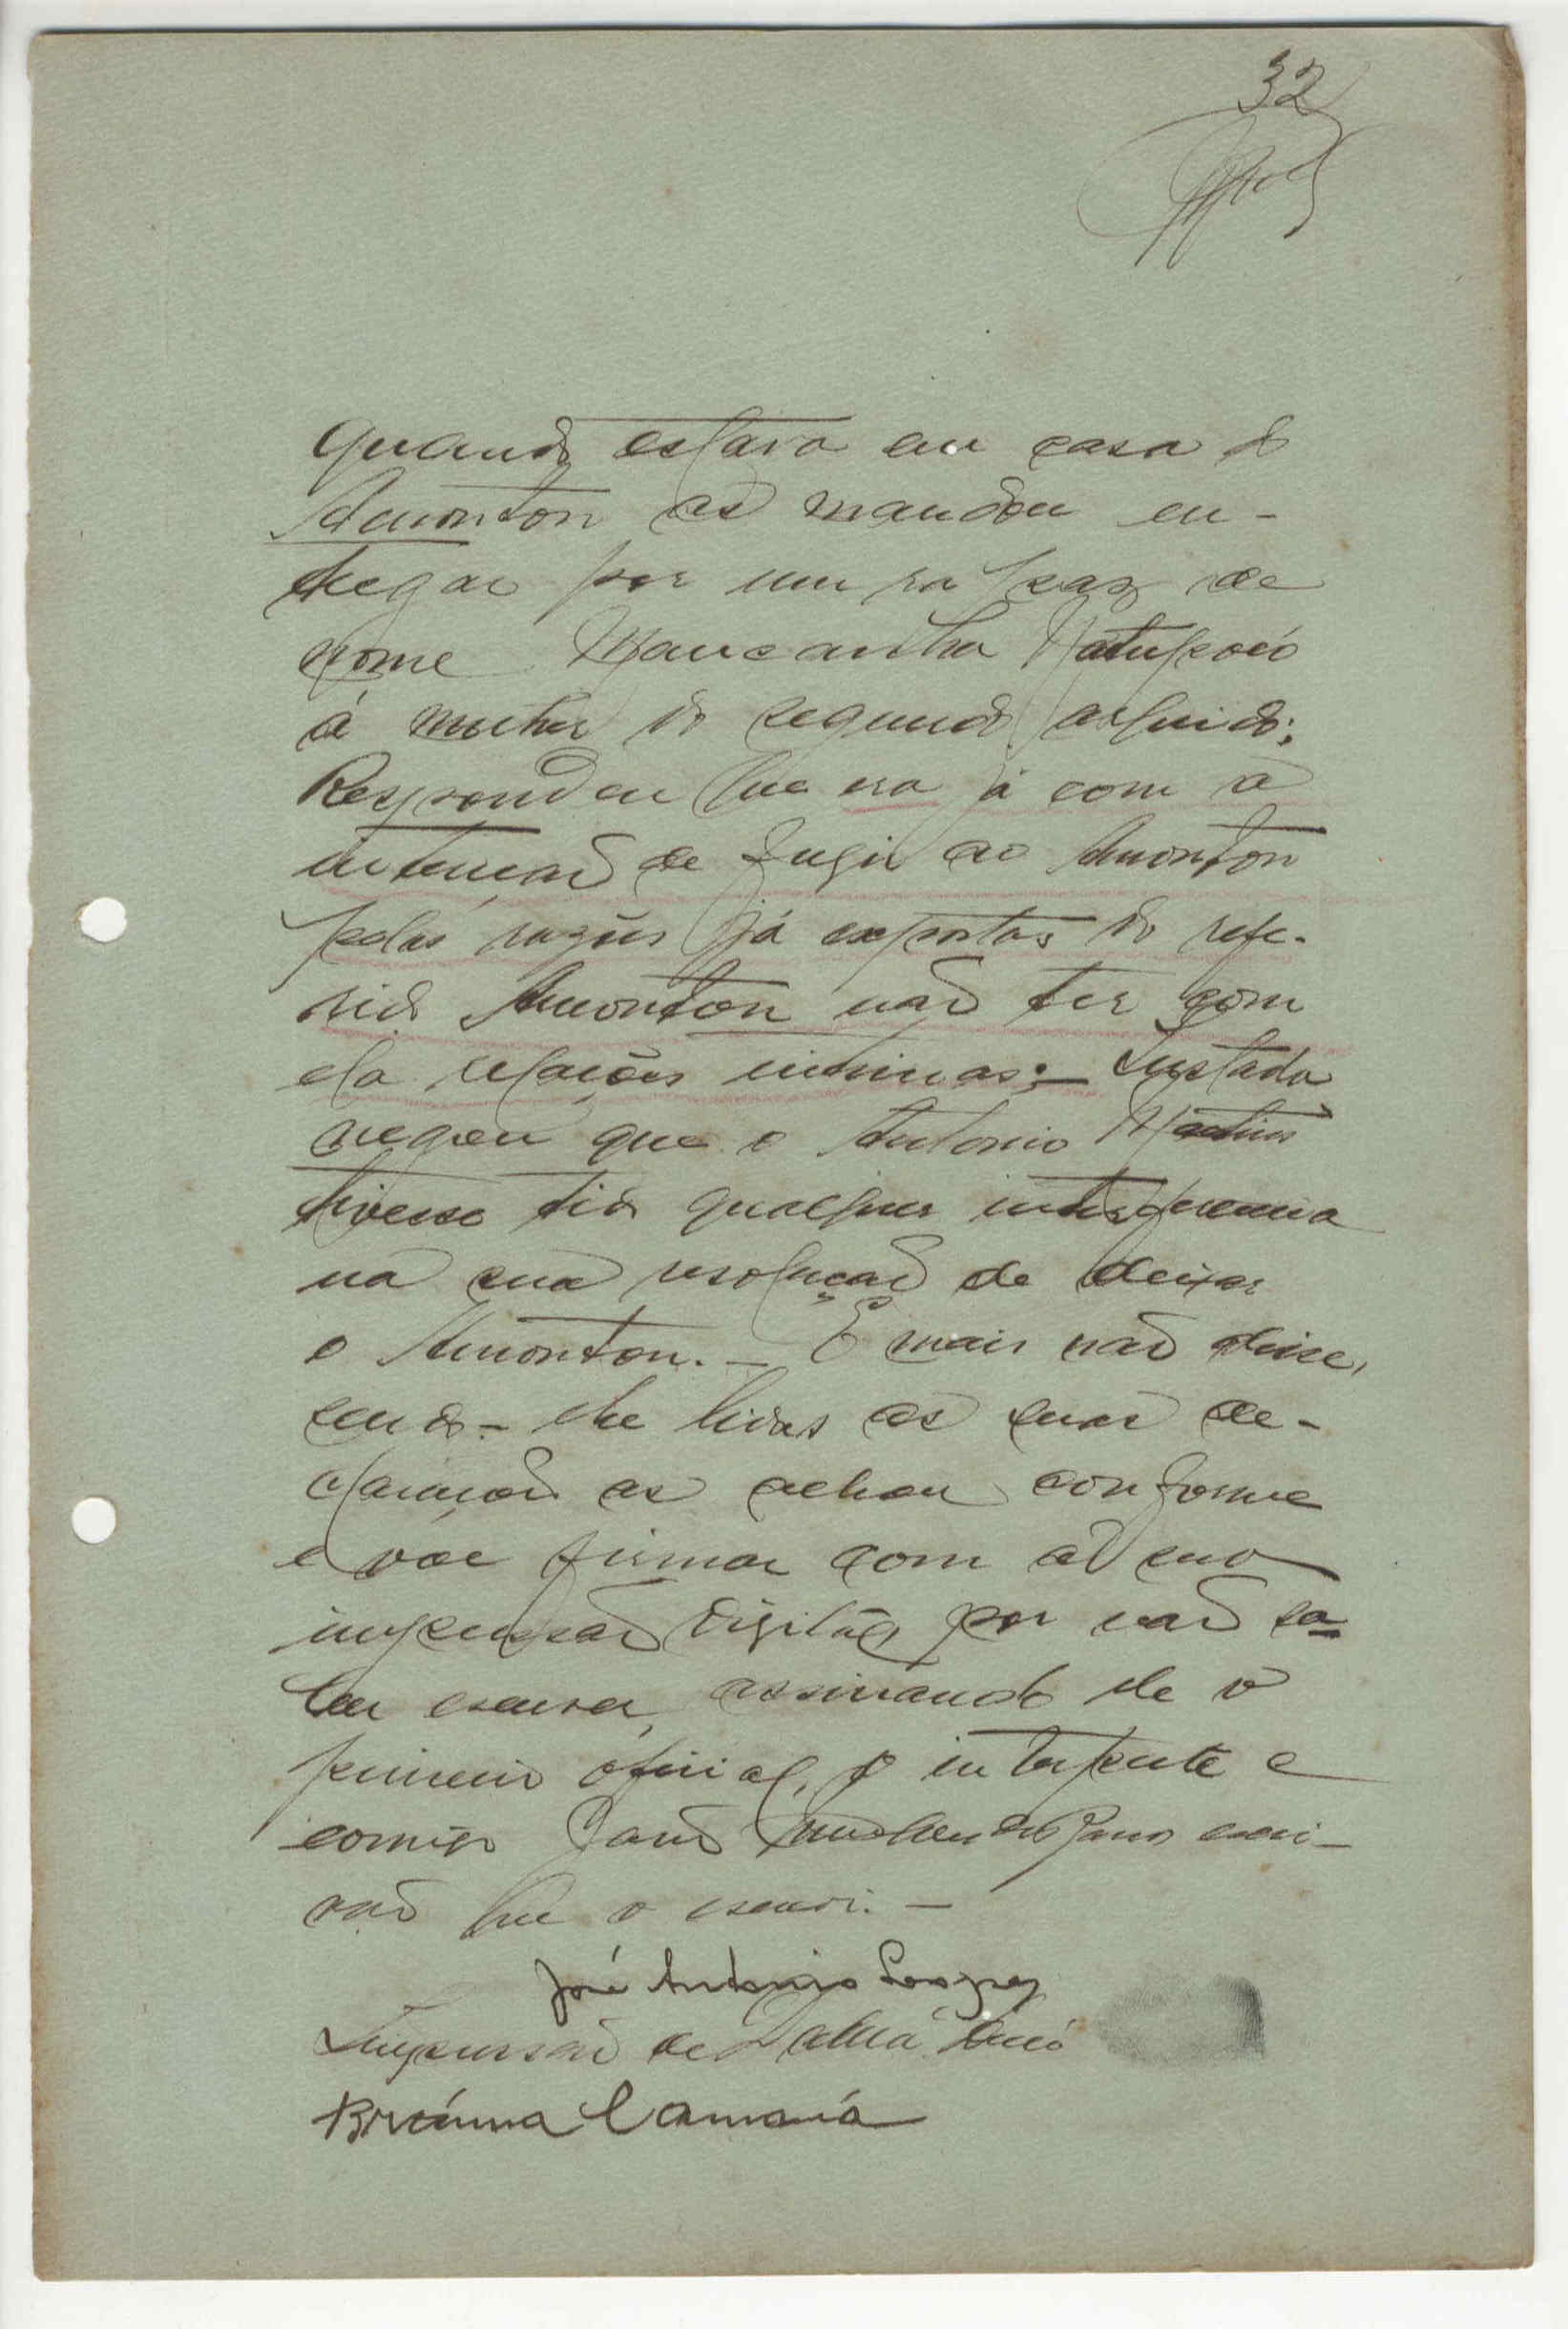 32
quando estava em casa do
Amonton as mandou en-
tregar por um rapaz de
nome
á mulher do segundo arguido;
Respondeu que era já com a
intenção de fugir ao Amonton
pelas razões já expostas do refe-
rido Amonton não ter com
ela relações intimas; — Instada
negou que o Antonio Martins
tivesse tido qualquer interferencia
na sua resolução de deixar
o Amonton. — E mais não disse,
sendo-lhe lidas as suas de-
clarações as achou conforme
e vae firmar com a sua
impressão digital, por não sa-
ber escrever, assinando ele o
primeiro oficial, o interprete e
comigo João escri-
vão que o escrevi. —
José Antonio Lopes
Impressão de
Camará